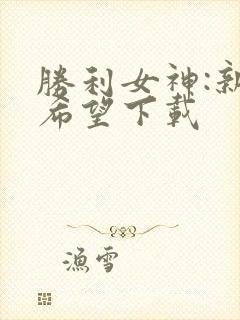 勝利女神:新
希望下載
漁雪